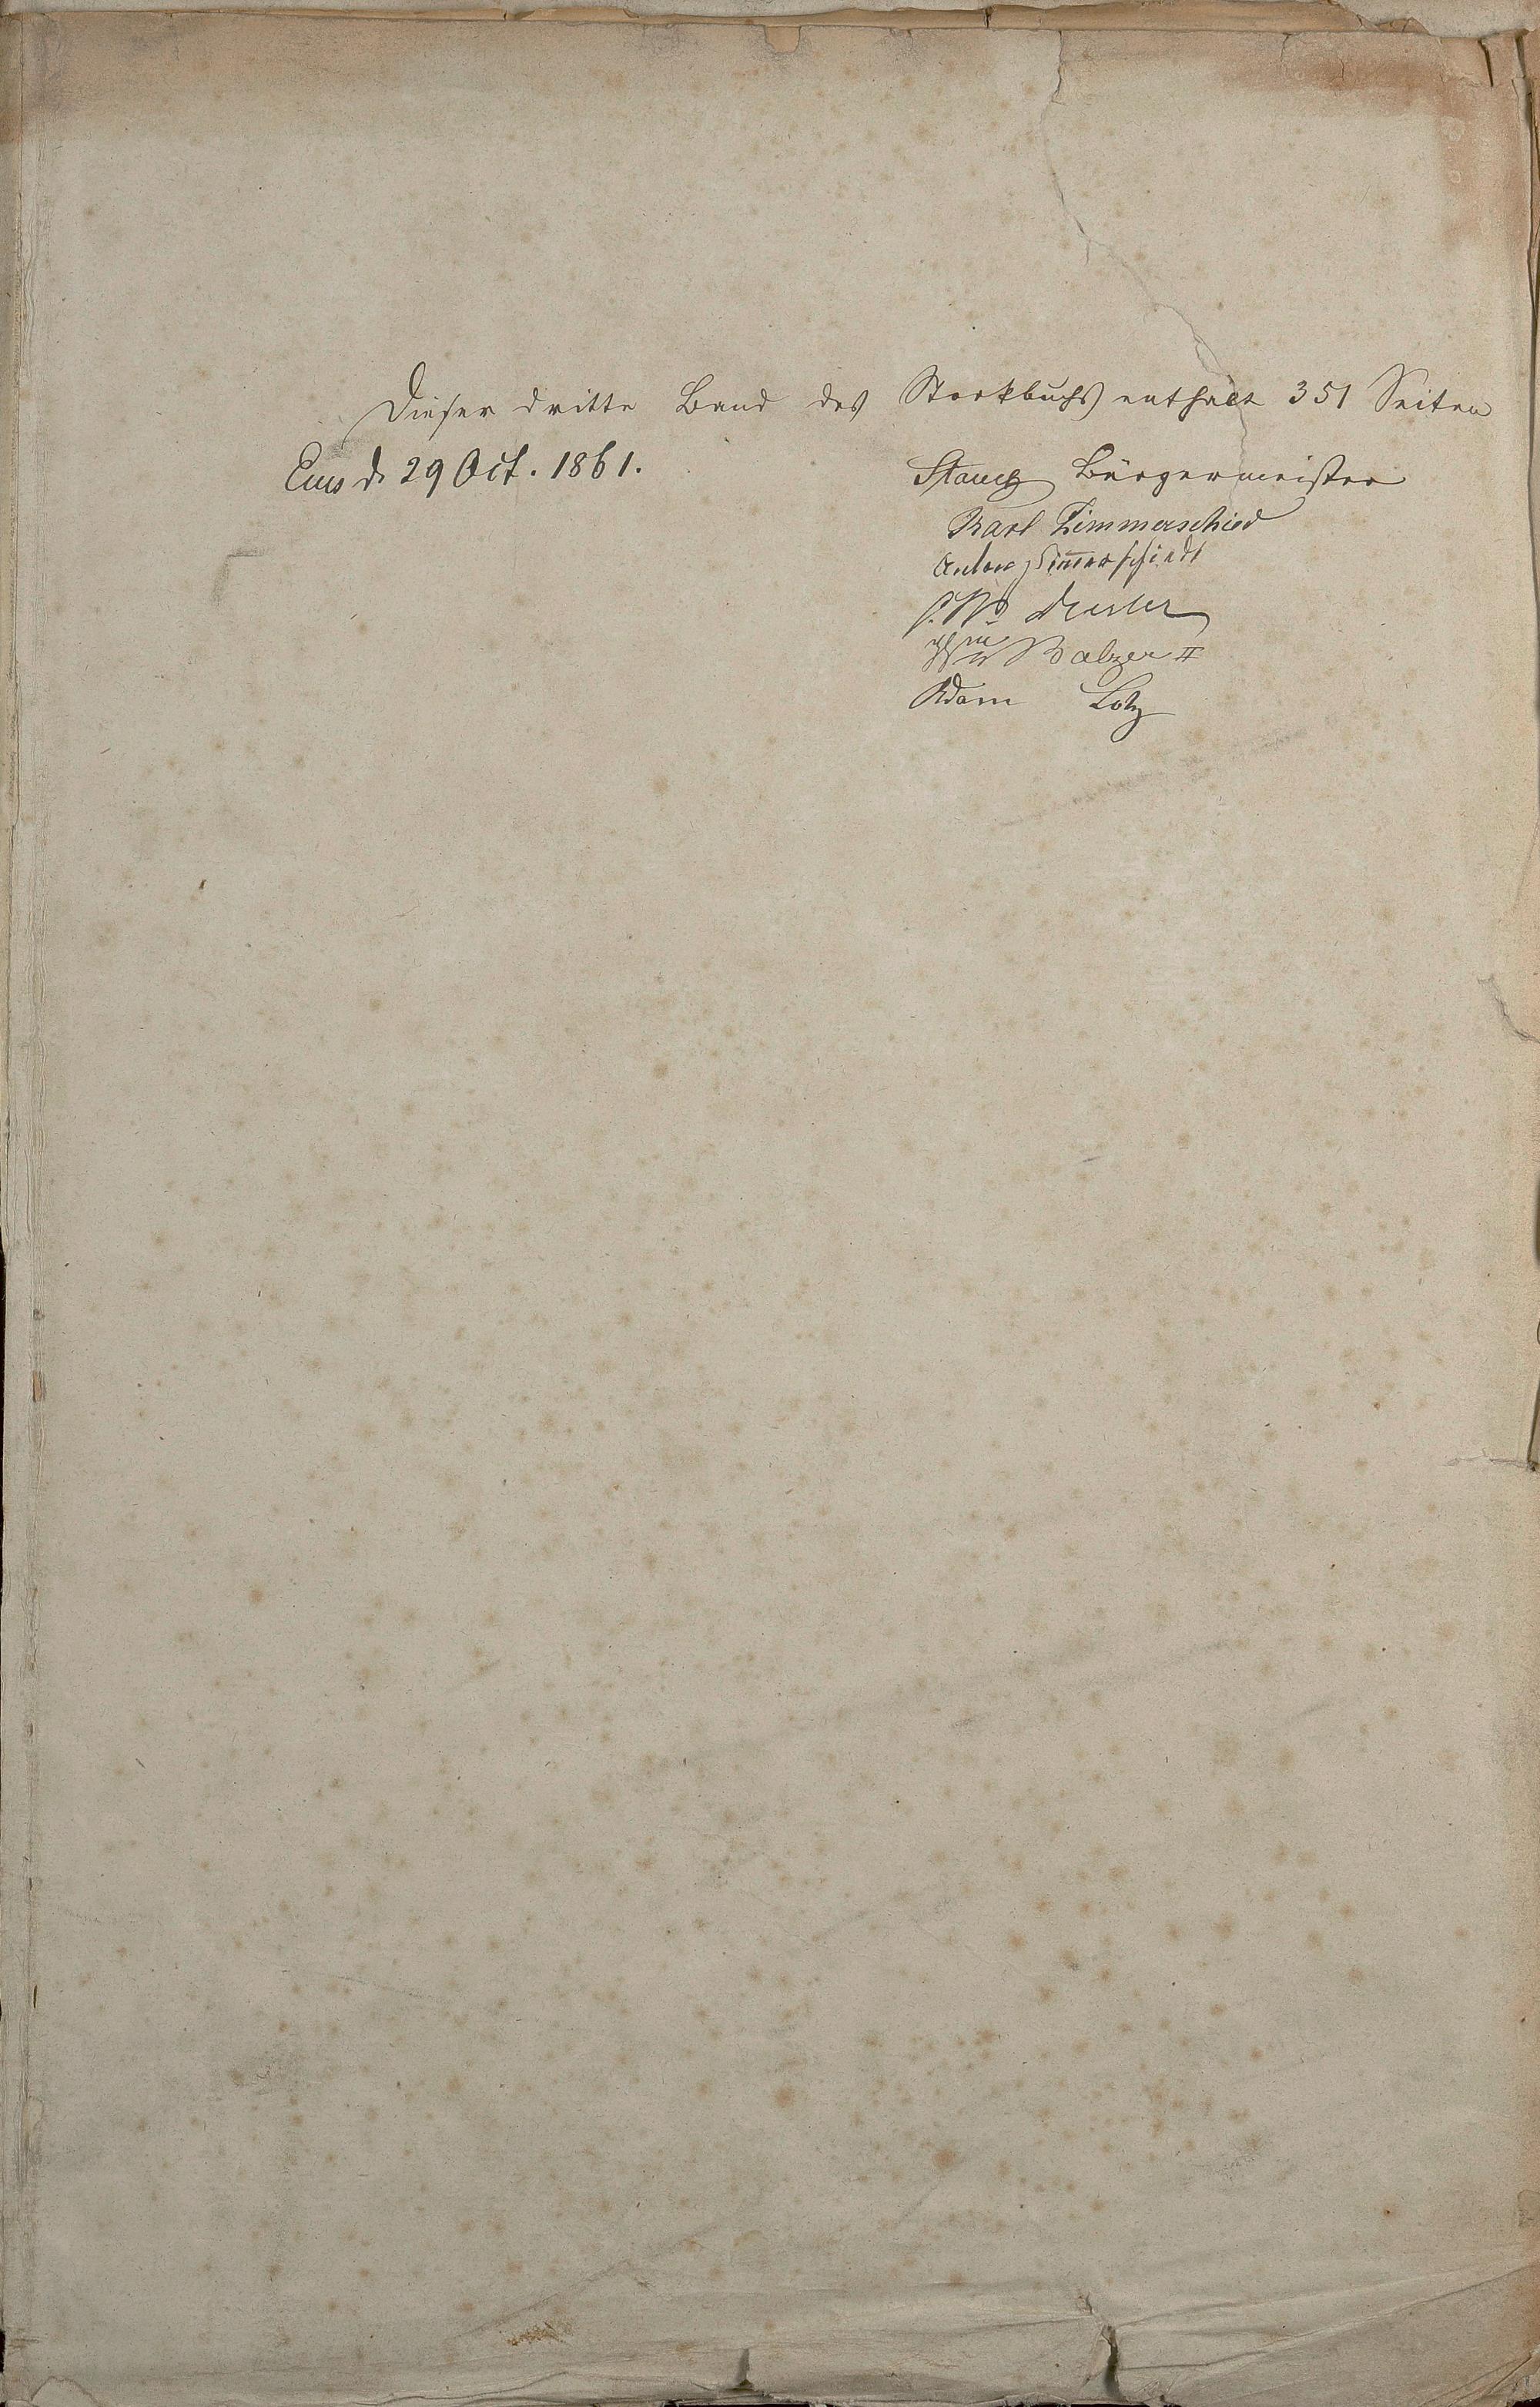 Dieser dritte Band des Stockbuchs enthält 351 Seiten
Ems d. 29 Oct. 1861.
Stauch Bürgermeister
Karl Zimmerschied
Anton Zim̅erschiedt
Balzer II
Adam Lotz